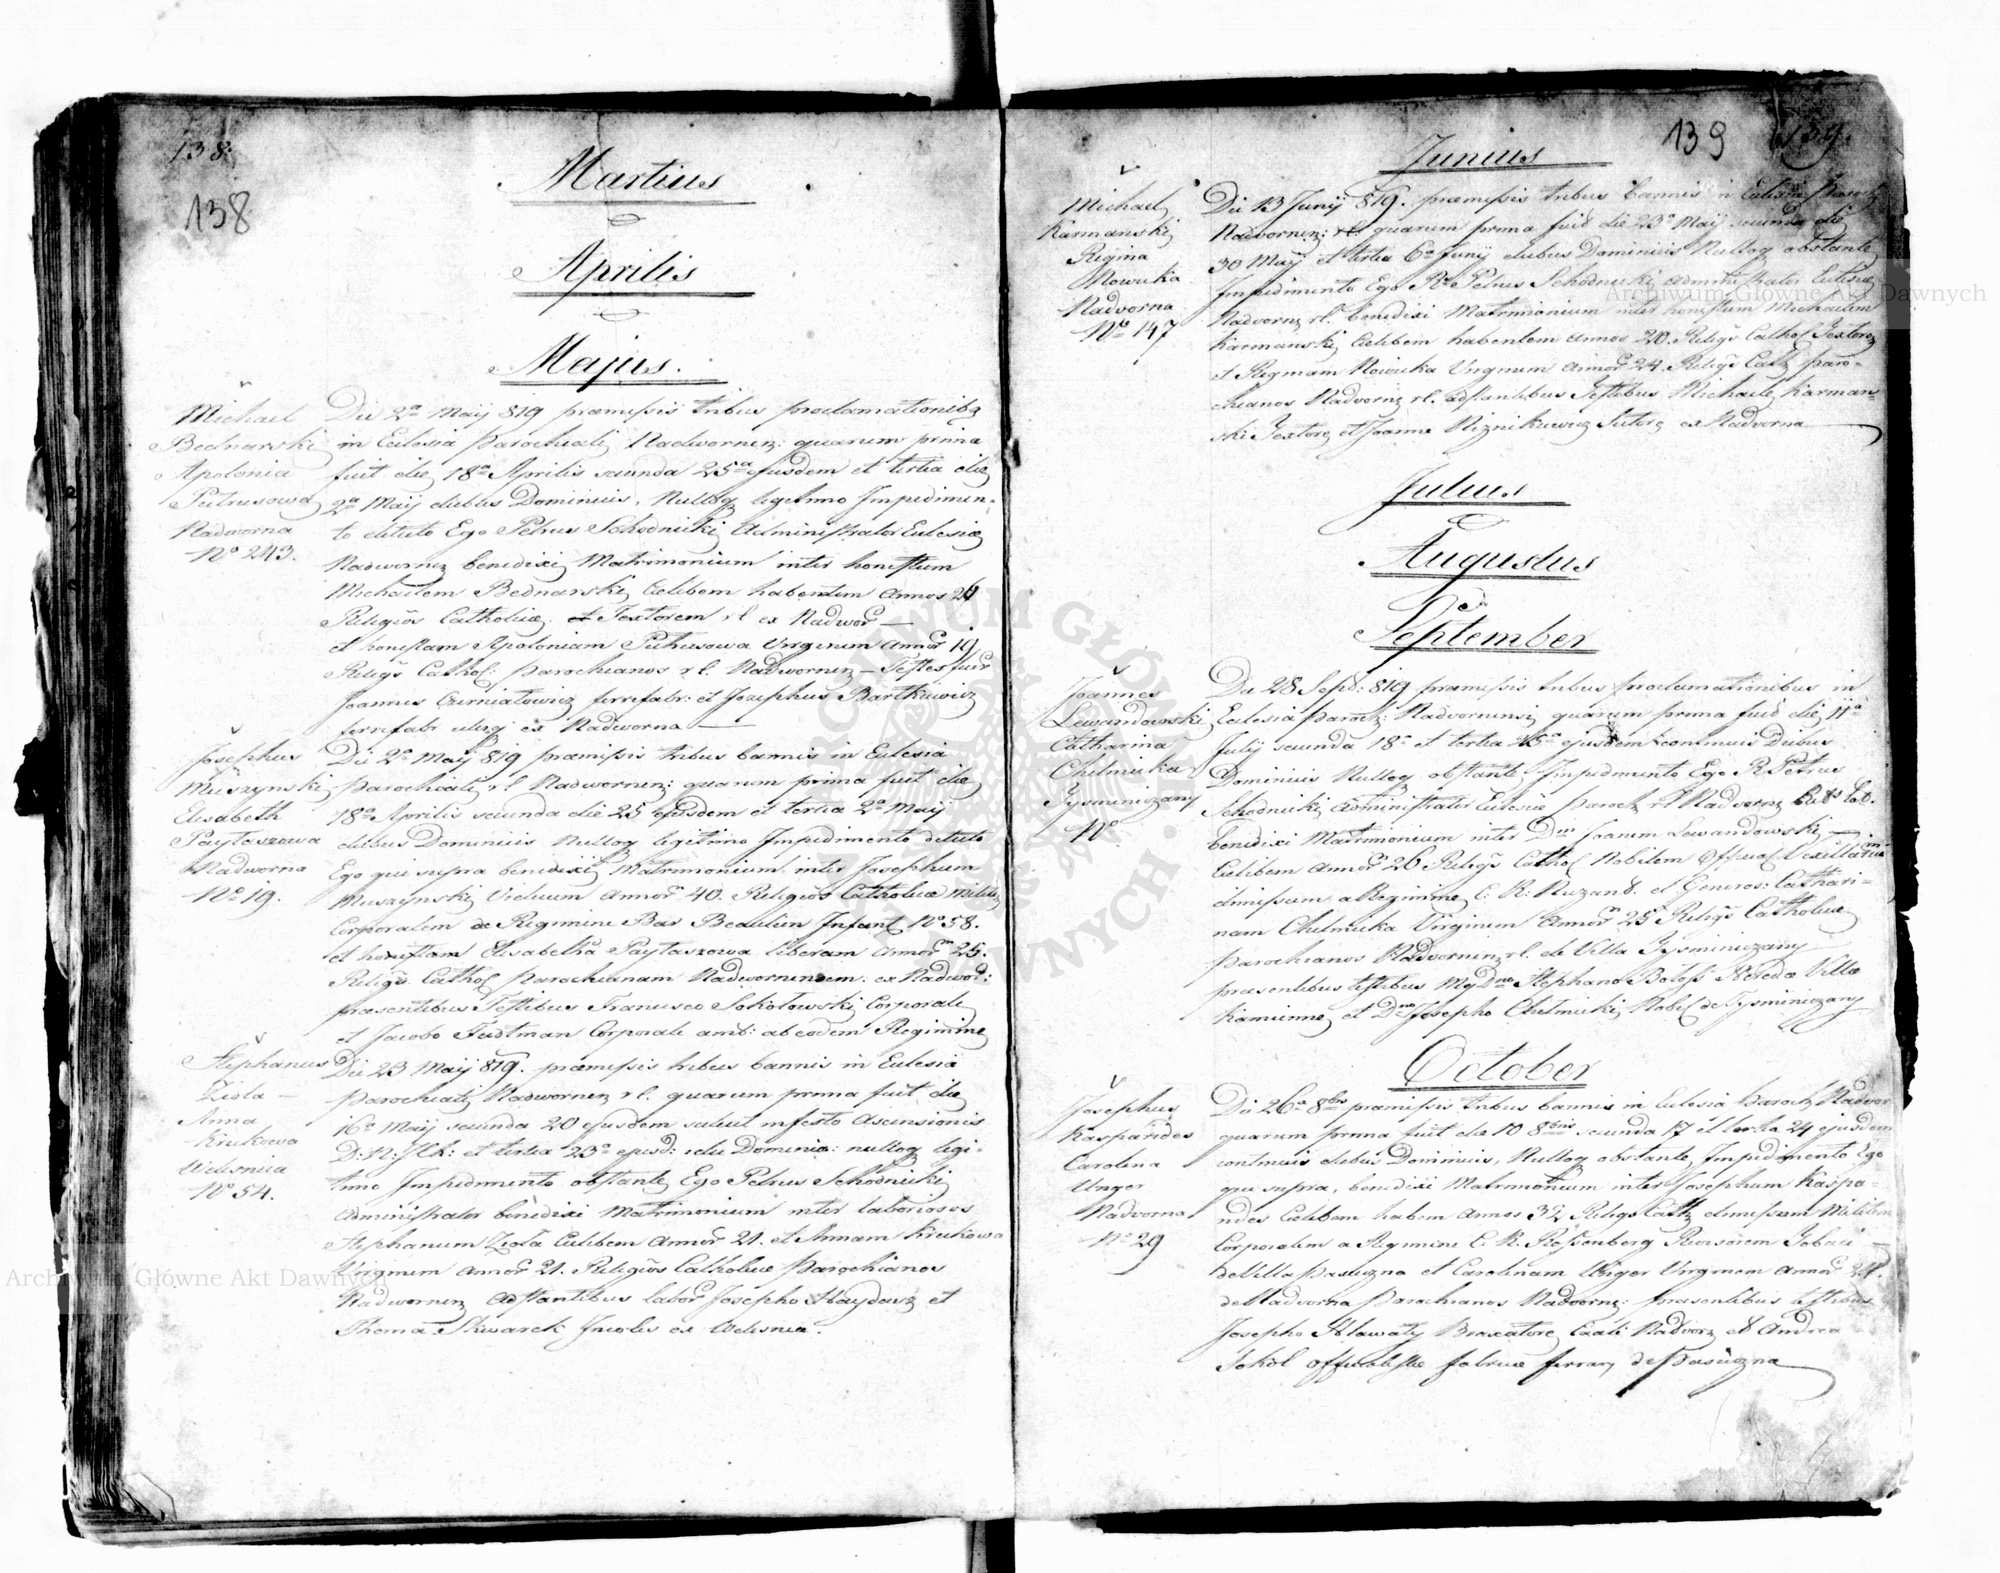 138.
138
Martius
Aprilis
Majus.
Michael
Bednarski
Apolonia
Petrusowa
Nadworna
Nº 243.
Die 2ª Maij 819 præmissis tribus proclamationibq
in Eclesia Parochiali Nadwornen: quarum prima
fuit die 18ª Aprilis secunda 25ª ejusdem et tertia die
2ª Maij diebus Dominicis, Nulloq legitimo Impedimen-
to detecto Ego Petrus Schodnicki Administrator Eclesiæ
Nadwornen benedixi Matrimonium inter honestum
Michaelem Bednarski Celibem habentem annos 24
Religiõs Catholicæ. et Textorem r l ex Nadwor
et honestam Apoloniam Petrusowa Virginem annor 19
Religs Cathol: Parochianos r l. Nadwornen Testes fuer
Joannes Czerniatowicz ferrifabr: et Josephus Bartkiewicz
ferrifabr ex Nadworna
Josephus
Muszynski
Elisabeth
Paytaszowa
Nadworna
Nº 19.
Die 2ª Maij 819 præmissis tribus bannis in Eclesia
Parochiali r l Nadwornen: quarum prima fuit die
18ª Aprilis secunda die 25 ejusdem et tertia 2ª Maij
diebus Dominicis Nulloq legitimo Impedimento detecto
Ego qui supra benedixi Matrimonium inter Josephum
Muszynski Viduum annor 40. Religiõs Catholicæ Militem
Corporalem de Regimine Bar Beaulieu Infant Nº 58.
et honestam Elisabetha Paytaszowa liberam annorm 25.
Religs Cathol Parochianam Nadwornensem. ex Nadwor:
præsentibus Testibus Francisco Sokolowski Corporale
et Jacobo Feidtman Corporale amb: ab eodem Regimine
Stephanus
Ziola
Anna
Krukowa
Welesnica
Nº 54.
Die 23 Maij 819. præmissis tribus bannis in Eclesia
Parochiali Nadwornen r l. quarum prima fuit die
16ª Maij secunda 20 ejusdem scilicet in festo Ascensionis
D: N: J Ch: et tertia 23ª ejusd: die Dominica: nulloq legi-
timo Impedimento obstante Ego Petrus Schodnicki
Administrator benedixi Matrimonium inter laboriosos
Stephanum Ziola Celibem annor 21. et Annam Krukowa
Virginem annor 21. Religiõs Catholicæ Parochianos
Nadwornen adstantibus labor Josepho Haydasz et
Thoma Skwarek Incolis ex Welesnica.
139 139.
Junius
Michael
Karmanski
Regina
Nowicka
Nadvorna
Nº 147
Die 13 Junij 819. præmissis tribus bannis in Eclesia Paroch
Nadvornen: r l. quarum prima fuit die 23ª Maij secunda die
30 Maij et tertia 6ª Junij diebus Dominicis Nulloq obstante
Impedimento Ego Petrus Schodnicki Administrator Eclesiæ
Nadvornen r l. benedixi Matrimonium inter honestum Michaelem
Karmanski Celibem habentem annos 20. Religs Cathol Textorem
et Reginam Nowicka Virginem annor 24. Religs Cath Paro-
chianos Nadvornen r l. adstantibus Testibus Michaele Karman
ski Textore et Joanne Niznikiewicz Sutore ex Nadvorna
Julius
Augustus
September
Joannes
Lewandowski
Catharina
Chelmicka
Tysmieniczany
Nº
Die 28 Sept: 819 præmissis tribus proclamationibus in
Eclesia Paroch: Nadvornensi quarum prima fuit die 11ª
Julij secunda 18ª et tertia 25ª ejusdem continuis Diebus
Dominicis Nulloq obstante Impedimento Ego R Petrus
Schodnicki Administrator Eclesiæ Paroch r l Nadvornen
benedixi Matrimonium inter Dnm Joanem Lewandowski
Celibem annor 26 Religs Cathol Nobilem Vexillarium
dimissum a Regimine C. R: et Generos: Cathari-
nam Chelmicka Virginem annorm 25 Religs Catholicæ
Parochianos Nadvornen r l. de Villa Tysmieniczany
præsentibus testibus Mg Dno Stephano Hærede Villæ
Kamienne et Dno Josepho Chelmicki Nobil de Tysmieniczany
October
Josephus
Kasparides
Carolina
Unger
Nadvorna
Nº 29
Die 26ª 8bris præmissis tribus bannis in Eclesia Paroch Nadvor
quarum prima fuit die 10 8bris secunda 17 et tertia 24 ejusdem
continuis diebus Dominicis, Nulloq obstante Impedimento Ego
qui supra, benedixi Matrimonium inter Josephum Kaspa-
rides Celibem habem annos 32 Religs Cath dimissum Militem
Corporalem a Regimine C. R. Revisorem
de Villa Pasieczna et Carolinam Unger Virginem annor 21.
de Nadvorna Parochianos Nadvornen: præsentibus testibus
Josepho Hlawaty Braxatore Nadvorn et Andrea
Sokol fabricæ ferrar de Pasieczna
Archiwum Główne Akt Dawnych
Archiwum Główne Akt Dawnych
ARCHIWUM GŁÓWNE AKT DAWNYCH